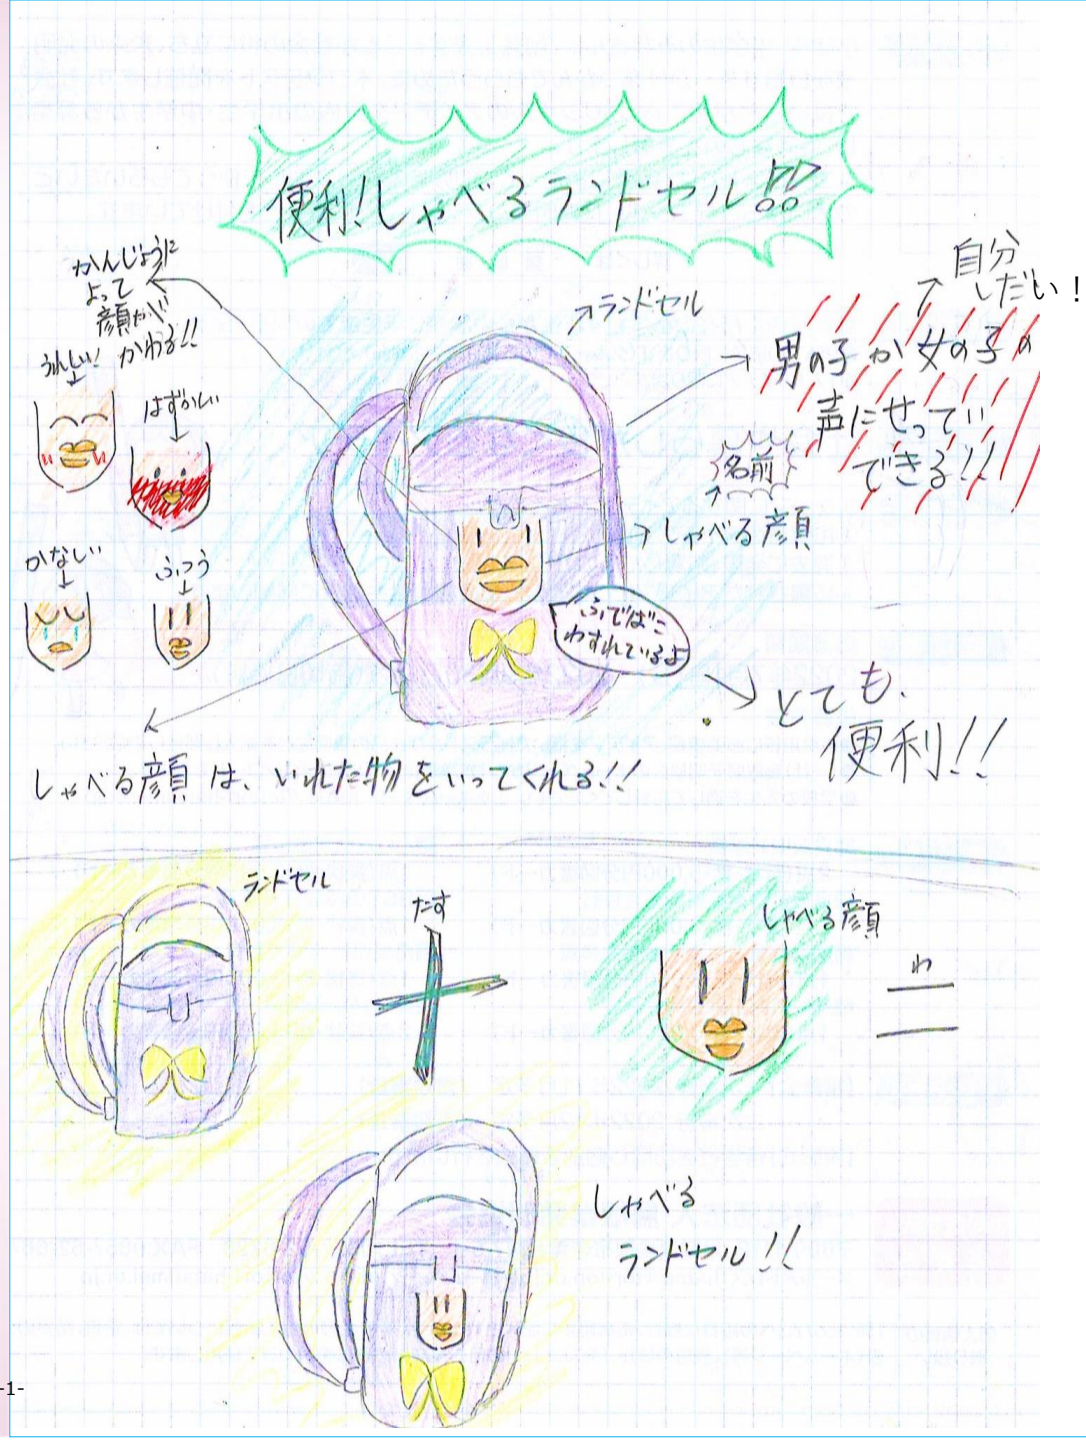 便利!しゃべるランドセル!!
かんじょうに
よって
顔が
かわる!!
うれしい!
はずかしい
かなしい
ふつう
ランドセル
自分
しだい!
男の子か女の子の
声にせってい
できる!!
名前
しゃべる顔
ふでばこ
わすれているよ
とても、
便利!!
しゃべる顔は、いれた物をいってくれる!!
ランドセル
たす
しゃべる顔
わ
しゃべる
ランドセル!!
-1-